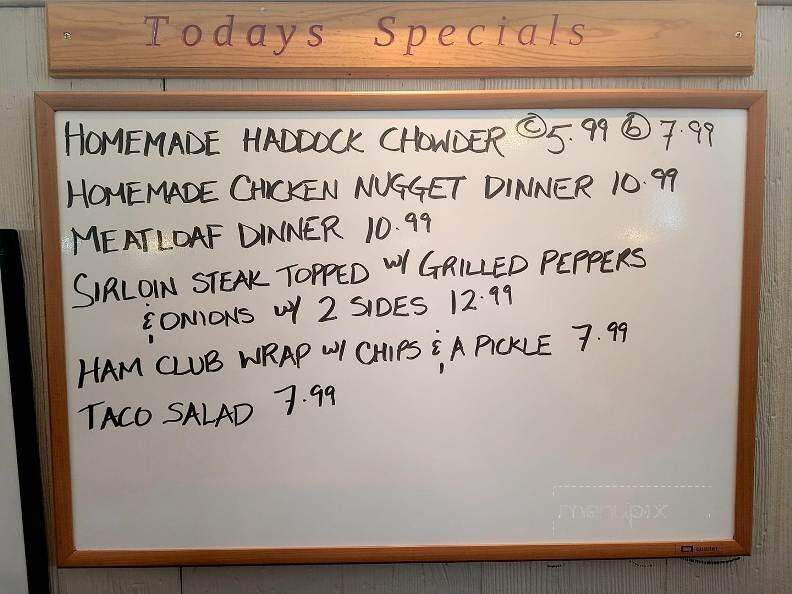 Todays Specials
HOMEMADE HADDOCK CHOWDER ©5.99 ⓑ 7.99
HOMEMADE CHICKEN NUGGET DINNER 10.99
MEATLOAF DINNER 10.99
SIRLOIN STEAK TOPPED w/ GRILLED PEPPERS
& ONIONS w/ 2 SIDES 12.99
HAM CLUB WRAP w/ CHIPS & A PICKLE 7.99
TACO SALAD 7.99
menupix